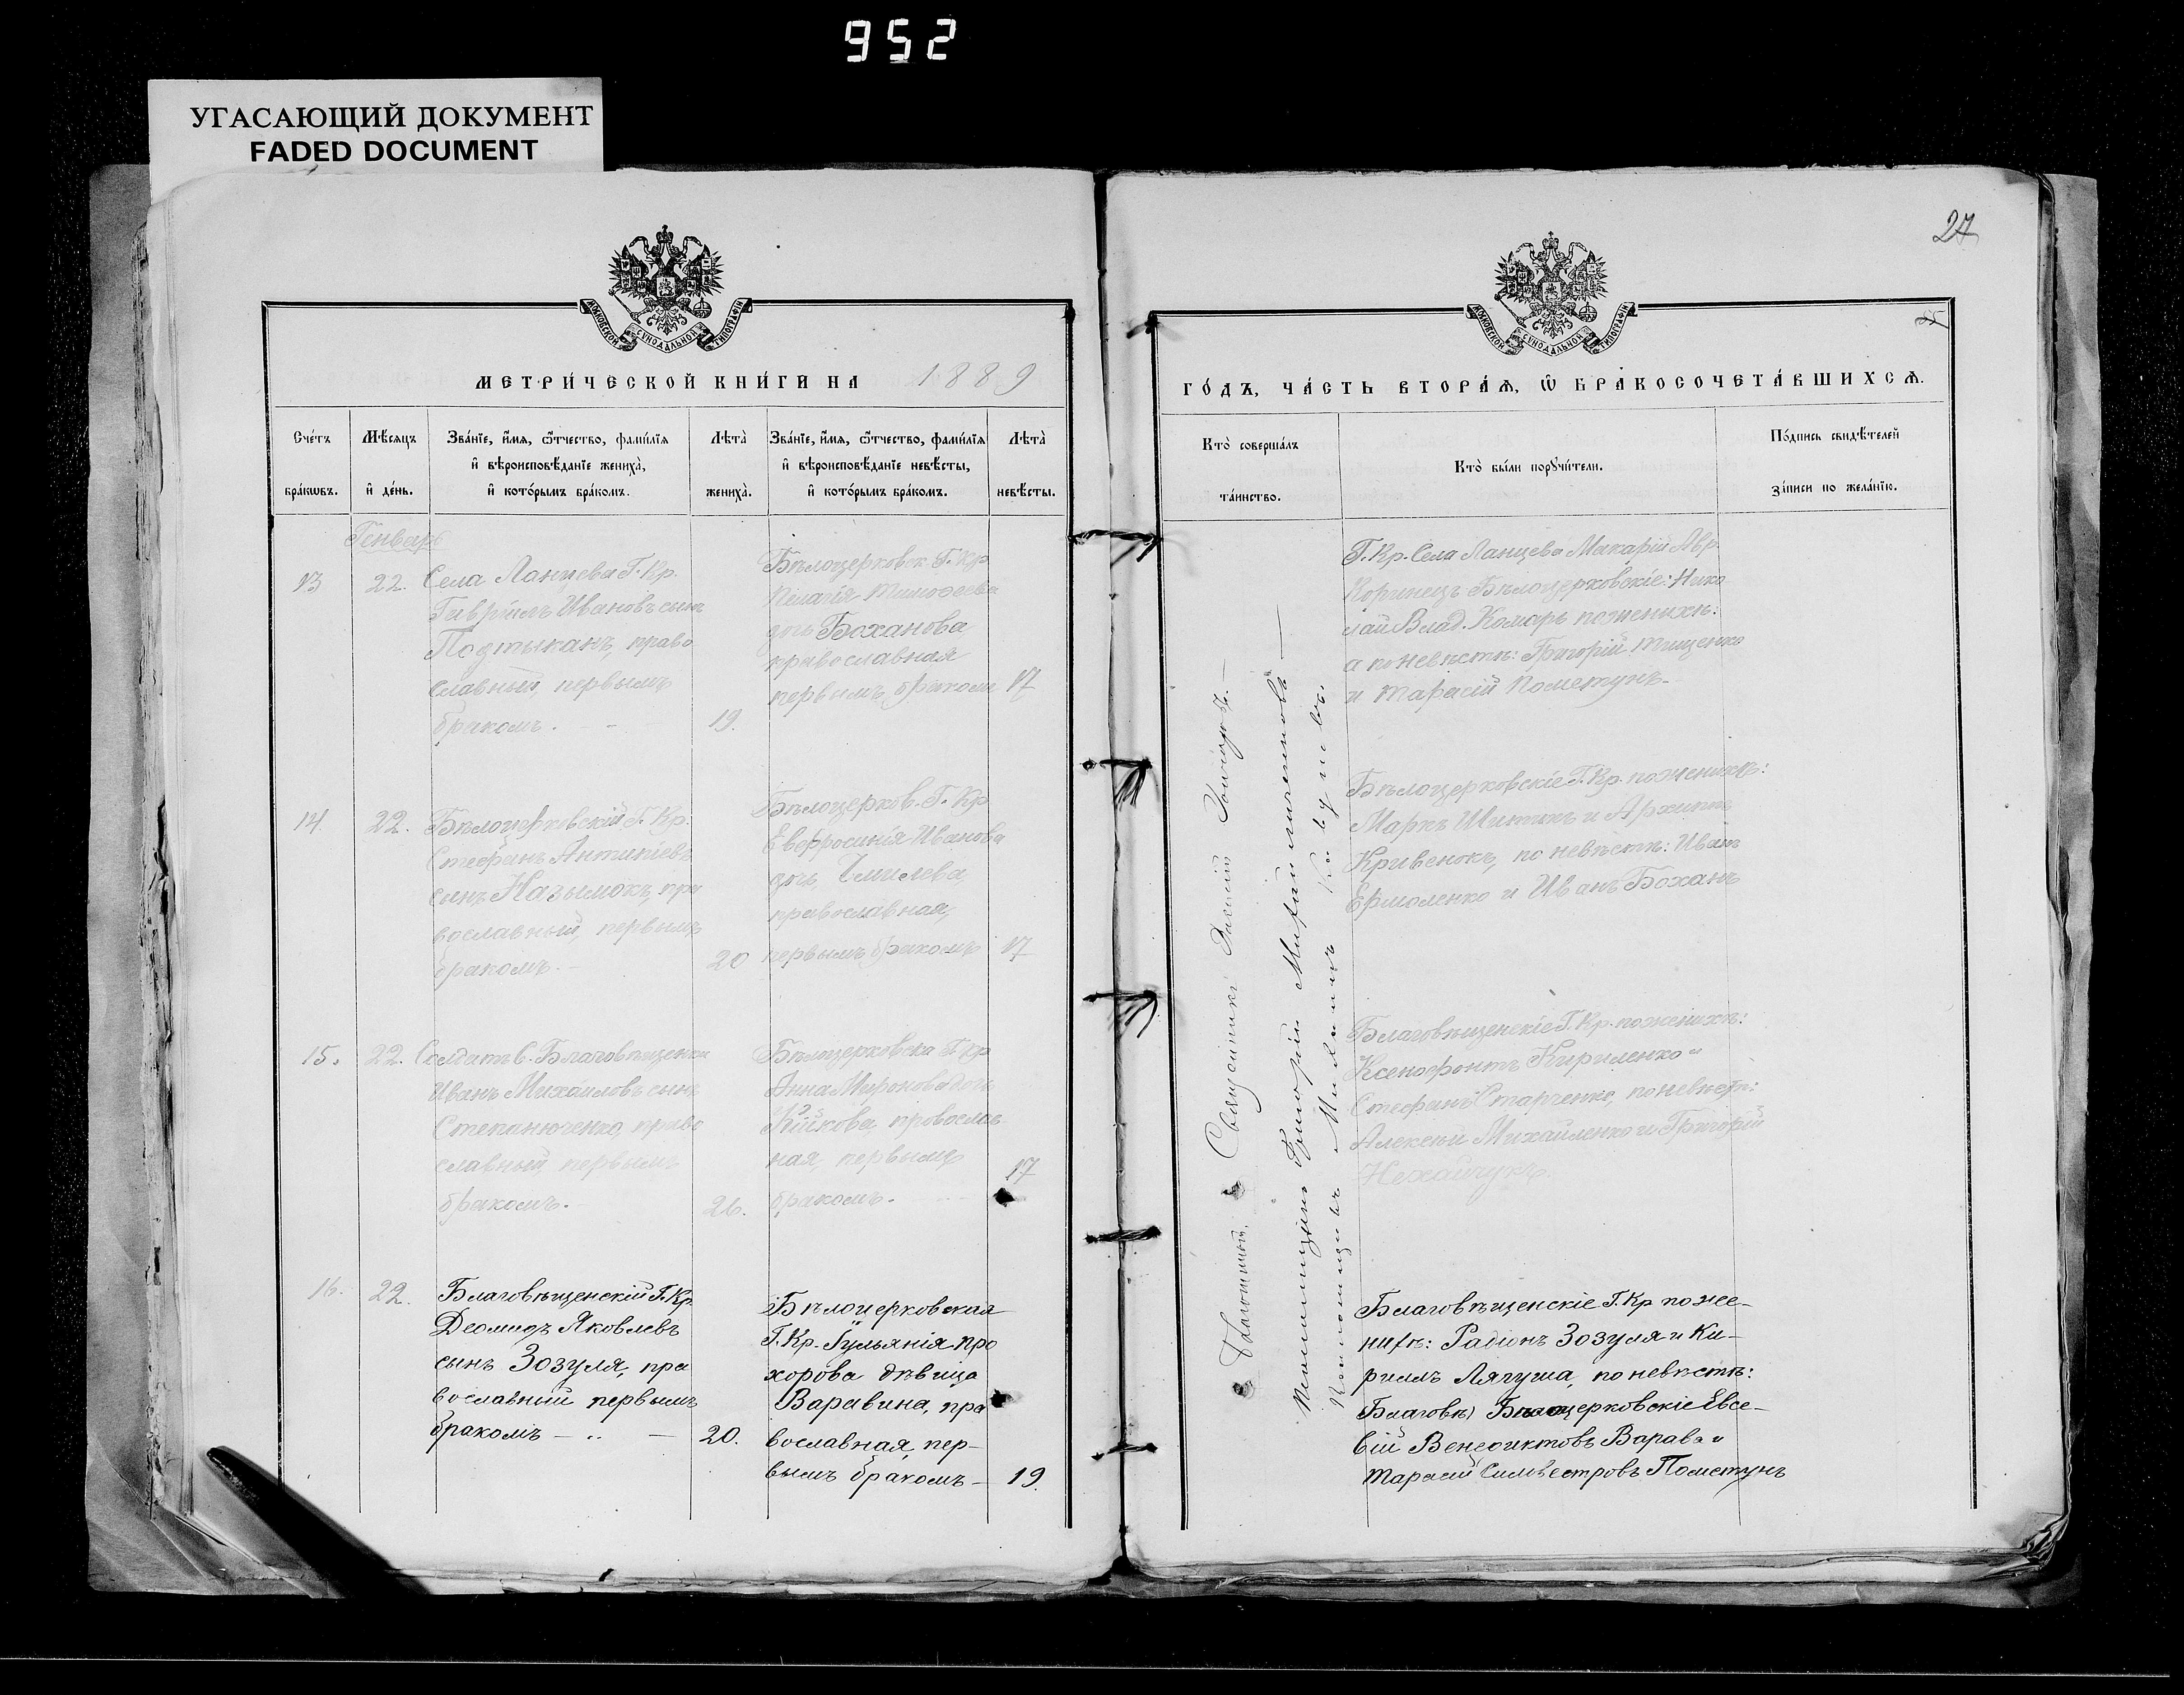 952
УГАСАЮЩИЙ ДОКУМЕНТ
FADED DOCUMENT
27
МОСКОВСКОЙ СѴНОДАЛЬНОЙ ТИПОГРАФІИ
МЕТРИ́ЧЕСКОЙ КНИ́ГИ НА 1889
Сче́тъ бра́кѡвъ.
Мѣ́сяцъ и҆ де́нь.
Зва́нїе, и҆́мя, ѻ҆́тчество, фами́лїя
и҆ вѣроисповѣ́данїе жениха̀,
и҆ кото́рымъ бра́комъ.
Лѣта̀ жениха̀.
Зва́нїе, и҆́мя, ѻ҆́тчество, фами́лїя
и҆ вѣроисповѣ́данїе невѣ́сты,
и҆ кото́рымъ бра́комъ.
Лѣта̀ невѣ́сты.
Генварь
13
22.
Села Ланцева Г. Кр.
Гаврiилъ Ивановъ сынъ
Подтыканъ, право
славный, первымъ
бракомъ. -
19.
Бѣлоцерковск. Г. Кр
Пелагія Тимофеева
дочь Боханова
православная
первымъ бракомъ
17
14
22.
Бѣлоцерковскій Г. Кр.
Стефанъ Антипіевъ
сынъ Назымокъ, пра
вославный, первымъ
бракомъ. -
20
Бѣлоцерков. Г. Кр
Евфросинія Иванова
дочь,
православная,
первымъ бракомъ
17
15.
22.
Солдатъ С. Благовѣщенки
Иванъ Михайловъ сынъ
Степанюченко, право
славный, первымъ
бракомъ. -
26.
Бѣлоцерковска Г. Кр
Анна Миронова дочь
православ
ная, первымъ
бракомъ.
17
16.
22.
Благовѣщенскій Г. Кр.
Деомидъ Яковлевъ
сынъ Зозуля, пра
вославный первымъ
бракомъ — .. —
20.
Бѣлоцерковская
Г. Кр. Гульянія Про
хорова дѣвица
Варавина, пра
вославная, пер-
вымъ бракомъ -
19.
МОСКОВСКОЙ СѴНОДАЛЬНОЙ ТИПОГРАФІИ
ГО́ДЪ, ЧА́СТЬ ВТОРА́Ѧ, Ѽ БРАКОСОЧЕТА́ВШИХСѦ.
Кто̀ соверша́лъ
та́инство.
Кто̀ бы́ли порꙋчи́тели.
По́дпись свидѣ́телей
за́писи по жела́нїю.
Священникъ
Григорій
Михаилъ
Г. Кр. Села Ланцева Макарій Авр.
Коринецъ Бѣлоцерковскіе: Нико
лай Влад. Комаръ по женихѣ:
а по невѣстѣ: Григорій Тищенко
и Тарасій Пометунъ. -
Бѣлоцерковскіе Г. Кр. по женихѣ:
Маркъ и Архипъ
Кривенокъ, по невѣстѣ: Иванъ
Ермоленко и Иванъ Боханъ
Благовѣщенскіе Г. Кр. по женихѣ:
Ксенофонтъ Кириленко и
Стефанъ Старченко, по невѣстѣ:
Алексѣй Михайленко и Григорій
Нехайчукъ.
Благовѣщенскіе Г. Кр по же-
нихѣ: Радіонъ Зозуля и Ки-
риллъ Лягуша, по невѣстѣ:
Благовѣ) Бѣлоцерковскіе Евсе-
вій Венедиктовъ Варава и
Тарасій Сильвестровъ Пометунъ